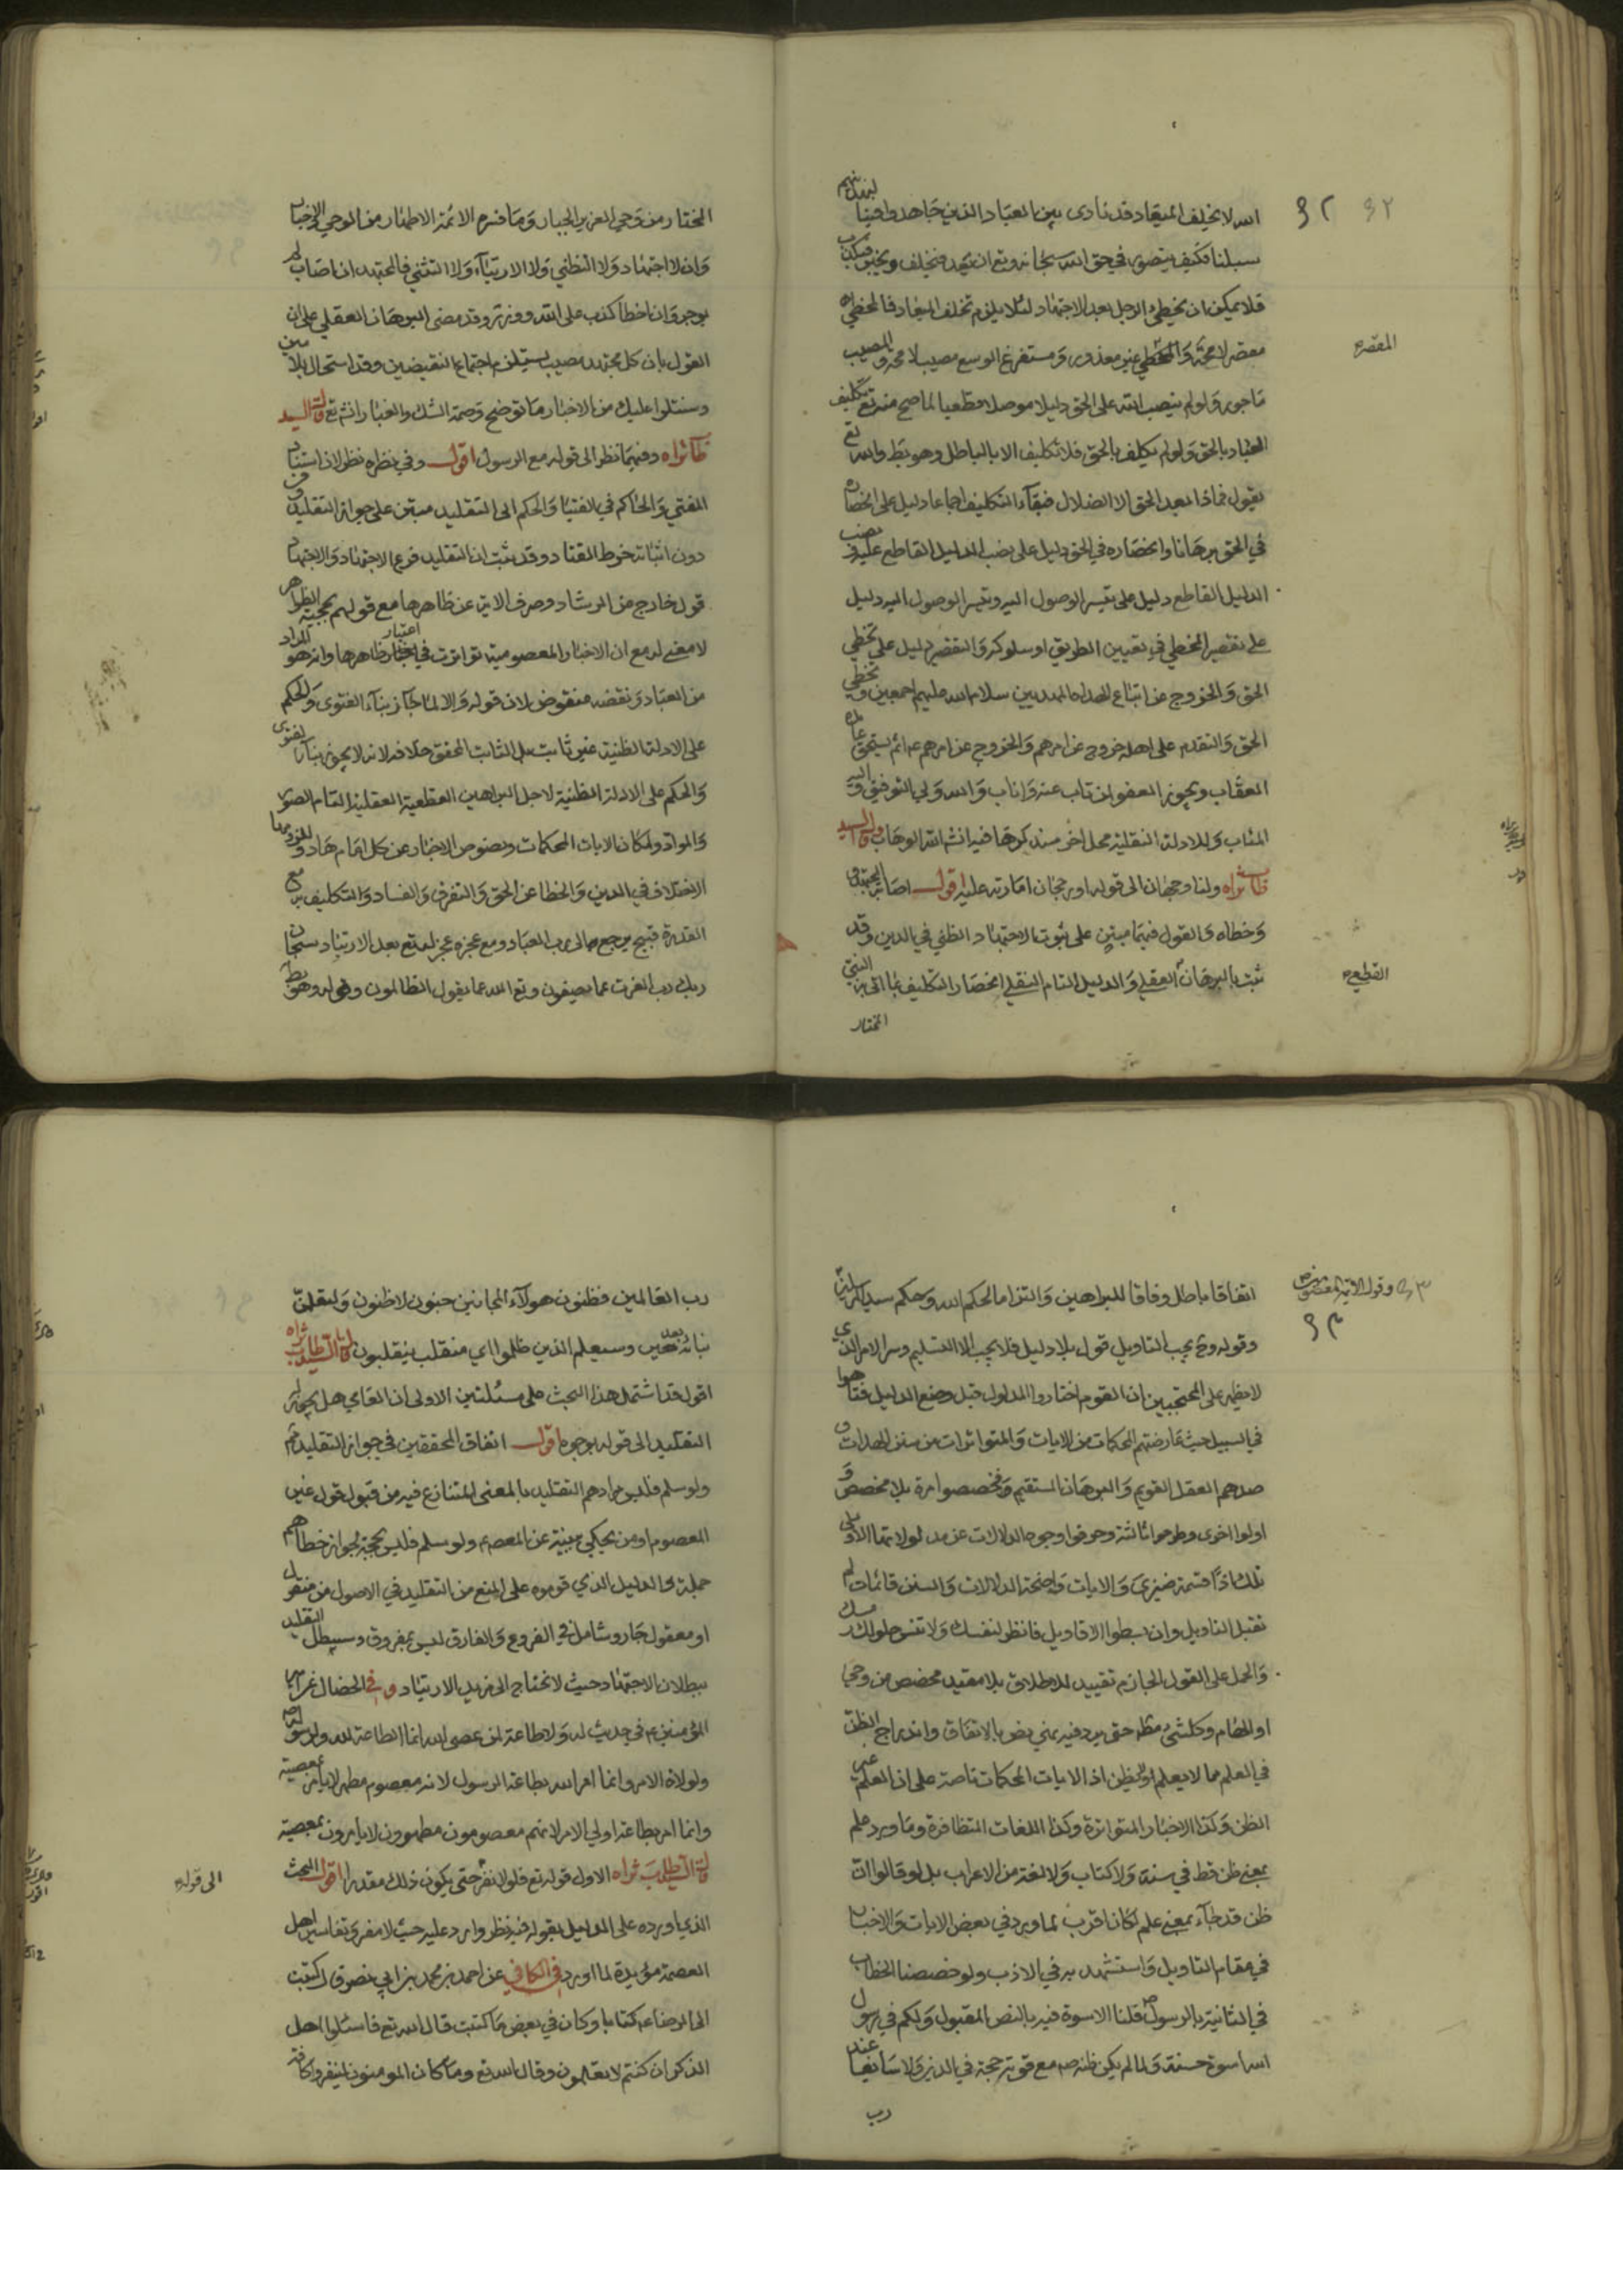 الله لا يخلف الميعاد قد نادى بين العباد الذين جاهدوا فينا لنهدينهم
سبلنا فكيف يتصور في حق الله سبحانه وتع ان يعد فيخلف ويخبر فيكذب
فلا يمكن ان يخطئ الرجل بعد الاجتهاد لئلا يلزم تخلف الميعاد فالمخطي
مقصر لا محة والمخطي غير معذور ومستفرغ الوسع مصيب لا محة والمصيب
ماجور ولو لم ينصب الله على الحق دليلا موصلا قطعيا لما صح منه تع تكليف
العباد بالحق ولو لم يكلف بالحق فلا تكليف الا بالباطل وهو بط والله تع
يقول فماذا بعد الحق الا الضلال فبقآء التكليف اجماعا دليل على انحصاره
في الحق برهانا وانحصاره في الحق دليل على نصب الدليل القاطع عليه ونصب
الدليل القاطع دليل على تيسر الوصول اليه وتيسر الوصول اليه دليل
على تقصير المخطي في تعيين الطريق او سلوكه والتقصير دليل على تخطي
الحق والخروج عن اتباع الهداة المهديين سلام الله عليهم اجمعين وتخطي
الحق والتقدم على اهله خروج عن امرهم والخروج عن امرهم عم اثم يستحق
العقاب ويجوز العفو لمن تاب عنه واناب والله ولي التوفيق واليه
المئاب وللادلة النقلية محل اخر سنذكرها فيه انشآ الله الوهاب قال السيد
طاب ثراه ولنا وجهان الى قوله او رجحان امارته عليه اقول اصابة المجتهد
وخطاه والقول فيهما مبتن على ثبوت الاجتهاد الظني في الدين وقد
ثبت بالبرهان العقلي والدليل التام النقلي انحصار التكليف بما اتى به النبي
المختار
المقصر
القطعي
المختار من وحي العزيز الجبار وما فسره الائمة الاطهار من الوحي والاخبار
وان لا اجتهاد ولا التظني ولا الارتيآء ولا التثني فالمجتهد ان اصاب لم
يوجر وان اخطا كذب على الله ووزر وقد مضى البرهان العقلي على ان
القول بان كل مجتهد مصيب يستلزم اجتماع النقيضين وقد استحال بلا مين
وسنتلوا عليك من الاخبار ما توضح وصمة الشك والغبار انش تع قال السيد
طاب ثراه وفيهما نظر الى قوله مع الرسول اقول وفي نظره نظر لان استناد
المفتي والحاكم في الفتيا والحكم الى التقليد مبتن على جواز التقليد و
دون اثباته خرط القتاد وقد ثبت ان التقليد فرع الاجتهاد والاجتهاد
قول خارج من الرشاد وصرف الاية عن ظاهرها مع قولهم بحجية الظواهر
لا معنى له مع ان الاخبار المعصومية تواترت في اعتبار ظاهرها وانه هو المراد
من العباد ونقضه منقوض لان قوله والا لما جاز بنآء الفتوى والحكم
على الادلة الظنية غير ثابت بل الثابت المحقق خلافه لانه لا يجوز بنآء الفتوى
والحكم على الادلة الظنية لاجل البراهين القطعية العقلية التام الصور
والمواد ولمكان الايات المحكمات ونصوص الاخبار عن كل امام هاد
الاختلاف في الدين والخطا عن الحق والتفرق والفساد والتكليف به مع
القدرة قبيح يرجع
ربك رب العزت عما يصفون وتع الله عما يقول الظالمون وقوله وهو بط
اتفاقا باطل وفاقا للبراهين والتزاما لحكم الله وحكم سيد المرسلين
وقوله وح يجب التاويل قول بلا دليل فلا يجب الا التسليم وسر الامر الذي
لا يظهر على المحتجبين ان القوم اختاروا المدلول قبل وضع الدليل فتاهوا
في السبيل حيث عارضتهم المحكمات من الايات والمتواترات من سنن الهدات و
صدهم العقل القويم والبرهان المستقيم فخصصوا مرة بلا مخصص و
اولوا اخرى وطرحوا ثالثة وحرفوا وجوه الدلالات عن مدلولاتها الاولى
تلك اذا قسمة ضيزى والايات واضحة الدلالات والسنن قائمات لم
تقبل التاويل وان بسطوا الاقاويل فانظر لنفسك
والحمل على القول الجازم تقييد للاطلاق بلا مقيد مخصص من وحي
او الهام وكلشئ مطلق حتى يرد فيه نهي نص بالاتفاق واندراج الظن
في العلم مما لا يعلم او لا يظن اذ الايات المحكمات ناصة على ان العلم غير
الظن وكذا الاخبار المتواترة وكذا اللغات المتظافرة وما ورد علم
بمعنى ظن قط في سنة ولا كتاب ولا لغة من الاعراب بل لو قالوا ان
ظن قد جآء بمعنى علم لكان اقرب لما ورد في بعض الايات والاخبار
في مقام التاويل واستشهد به في الادب ولو خصصنا الخطاب
في الثانية بالرسول ص قلنا الاسوة فيه بالنص المقبول ولكم في رسول
الله اسوة حسنة ولما لم يكن ظنه ص مع قوته حجة في الدين ولا سائغا عند
رب
وقول الائمة المعصومين
رب العالمين فظنون هولآء المجانين جنون لا ظنون ولتعلمن
نباه بعد حين وسيعلم الذين ظلموا اي منقلب ينقلبون قال السيد طاب ثراه
اقول قد اشتمل هذا البحث على مسئلتين الاولى ان العامي هل يجوز له
التقليد الى قوله بوجوه اقول اتفاق المحققين في جواز التقليد
ولو سلم فليس مرادهم التقليد بالمعنى المتنازع فيه من قبول قول غير
المعصوم او من يحكي ببينة عن المعصوم ولو سلم فليس بحجة لجواز خطاهم
جملة والدليل الذي قوموه على المنع من التقليد في الاصول من منقول
او معقول جار وشامل في الفروع والفارق ليس بمفروق وسيبطل التقليد
ببطلان الاجتهاد حيث لا نحتاج الى مزيد الارتياد وفي الخصال
المؤمنين عم في حديث له ولا طاعة لمن عصى الله انما الطاعة لله ولرسوله
ولولاة الامر وانما امر الله بطاعة الرسول لانه معصوم مطهر لا يامر بمعصية
وانما امر بطاعة اولي الامر لانهم معصومون مطهرون لا يامرون بمعصية
قال السيد طاب ثراه الاول قوله تع فلولا نفر حتى يكون ذلك مقدرا اقول البحث
الذي اورده على الدليل بقوله فيه نظر وارد عليه حيث لا مفر وتفاسير اهل
العصمة مؤيدة لما اورد في الكافي عن احمد بن محمد بن ابي نصر قال كتبت
الى الرضا عم كتابا وكان في بعض ما كتبت قال الله تع فاسئلوا اهل
الذكر ان كنتم لا تعلمون وقال الله تع وما كان المومنون لينفروا كافة
الى قوله